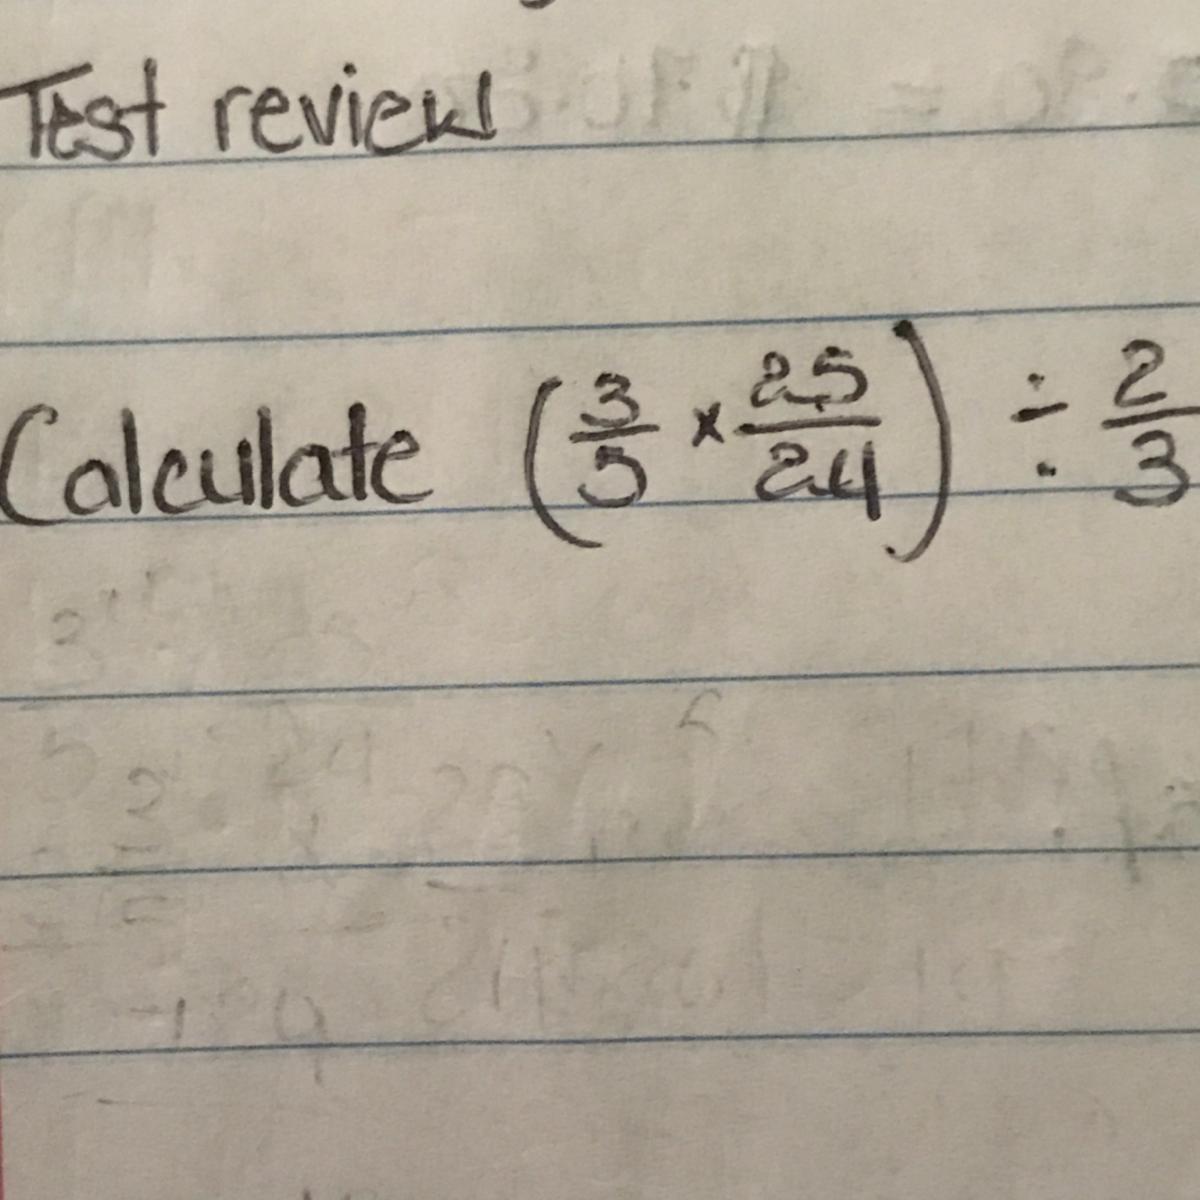 Test review
Calculate (3/5 × 25/24) ÷ 2/3